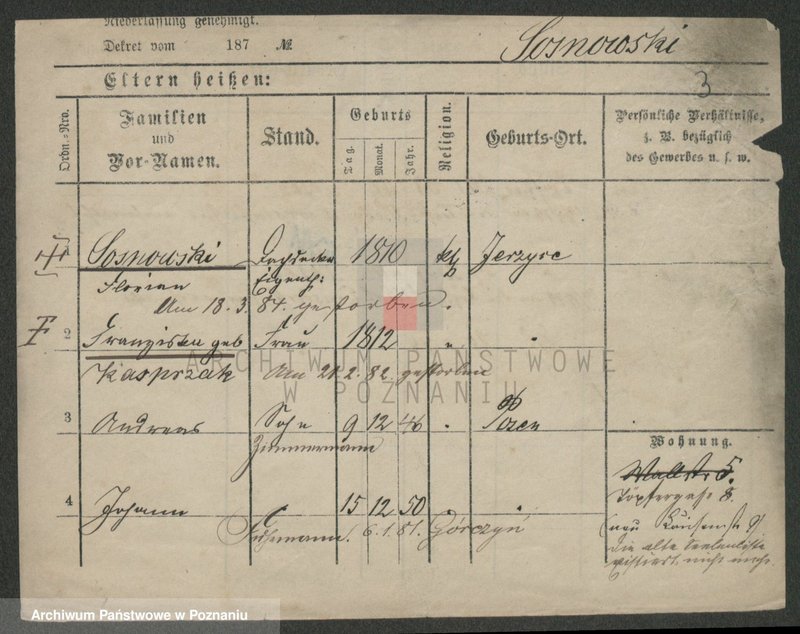 Niederlassung genehmigt.
Dekret vom 187 №
Sosnowski
3
Eltern heißen:
Ordn.-Nro.
Familien
und
Vor-Namen.
Stand.
Geburts
Tag.
Monat.
Jahr.
Religion.
Geburts-Ort.
Persönliche Verhältnisse,
z. B. bezüglich
des Gewerbes u. s. w.
Sosnowski Dachdecker 1810 kth Jerzyce
Florian Eigenth:
Am 18. 3. 84. gestorben.
2 Franziska geb Frau 1812 "
Kasprzak Am 21. 2. 82 gestorben
3 Andreas Sohn 9 12 46 " Posen
Zimmermann
4 Johann 15 12 50
Fuhrmann. 6. 1. 81. Górczyń
Wohnung.
Wallstr 5.
Töpfergasse 8.
die alte Seelenliste
existiert nicht mehr
ARCHIWUM PAŃSTWOWE
W POZNANIU
Archiwum Państwowe w Poznaniu